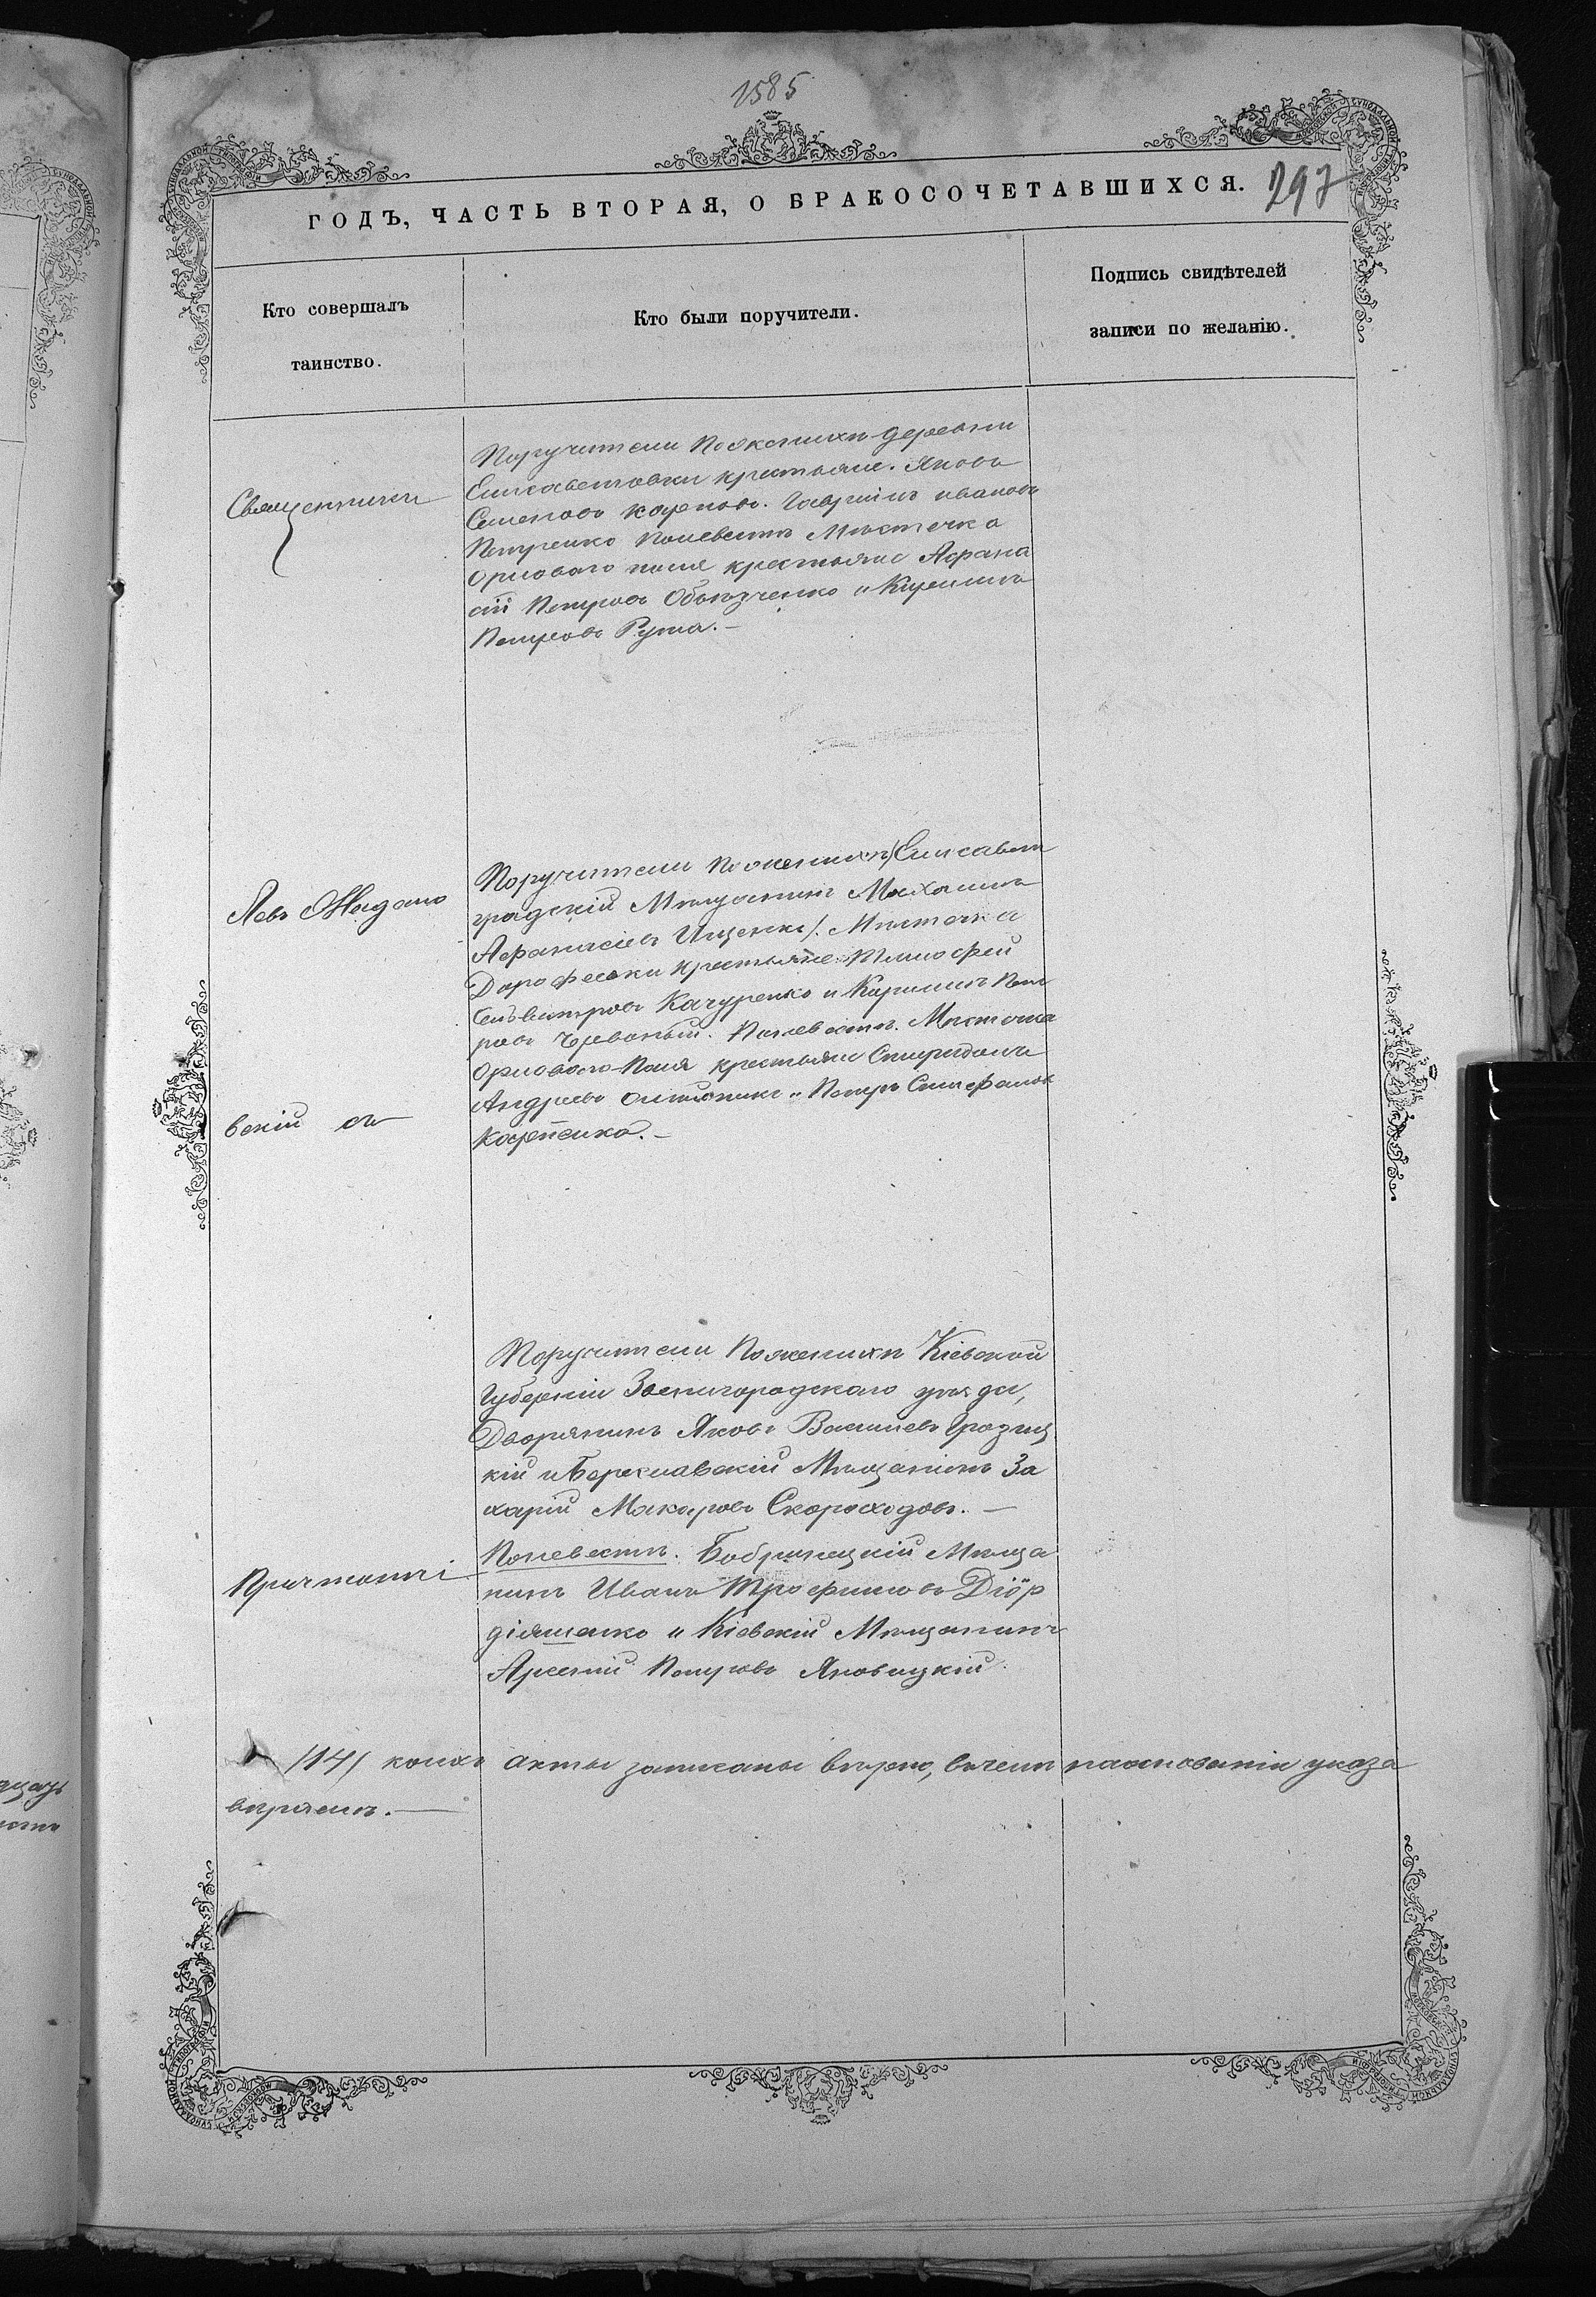 1585
ГОДЪ, ЧАСТЬ ВТОРАЯ, О БРАКОСОЧЕТАВШИХСЯ. 297
Кто совершалъ
таинство.
Кто были поручители.
Подпись свидѣтелей
записи по желанію.
Священникъ
Левъ Ждано
вскій съ
Причтомъ
Поручители Пожених деревни
Елисаветовки крестьяне. Яковъ
Семеновъ Карповъ. Гаврiилъ Ивановъ
Петренко Поневестѣ Мѣстечка
Орловаго поля крестьяне Афана
сій Петровъ Обѣзченко и Кирилъ
Петровъ Рута.—
Поручители Пожених Елисавет
градскій Мѣщанинъ Михаилъ
Афанасіевъ Ищенко. Мѣстечка
Дорофеевки крестьяне Тимофей
Селиверстровъ Качуренко и Кирилъ Пет
ровъ Червоный. Поневестѣ. Мѣстечка
Орловаго-Поля крестьяне Спиридонъ
Андреевъ и Петръ Стефановъ
Поручители Пожених Кіевской
Губерніи Звенигородскаго уѣзда,
Дворянинъ Яковъ Васильевъ Грозиц
кій и Бериславскій Мѣщанинъ За
харій Макаровъ Скороходовъ.—
Поневестѣ. Бобринецкій Мѣща
нинъ Иванъ Трофимовъ Діор
діященко и Кіевскій Мѣщанинъ
Арсеній Петровъ Яновицкій.
/14/ коихъ акты записаны вѣрно, въчемъ наоснованіи указа
вѣряемъ.—